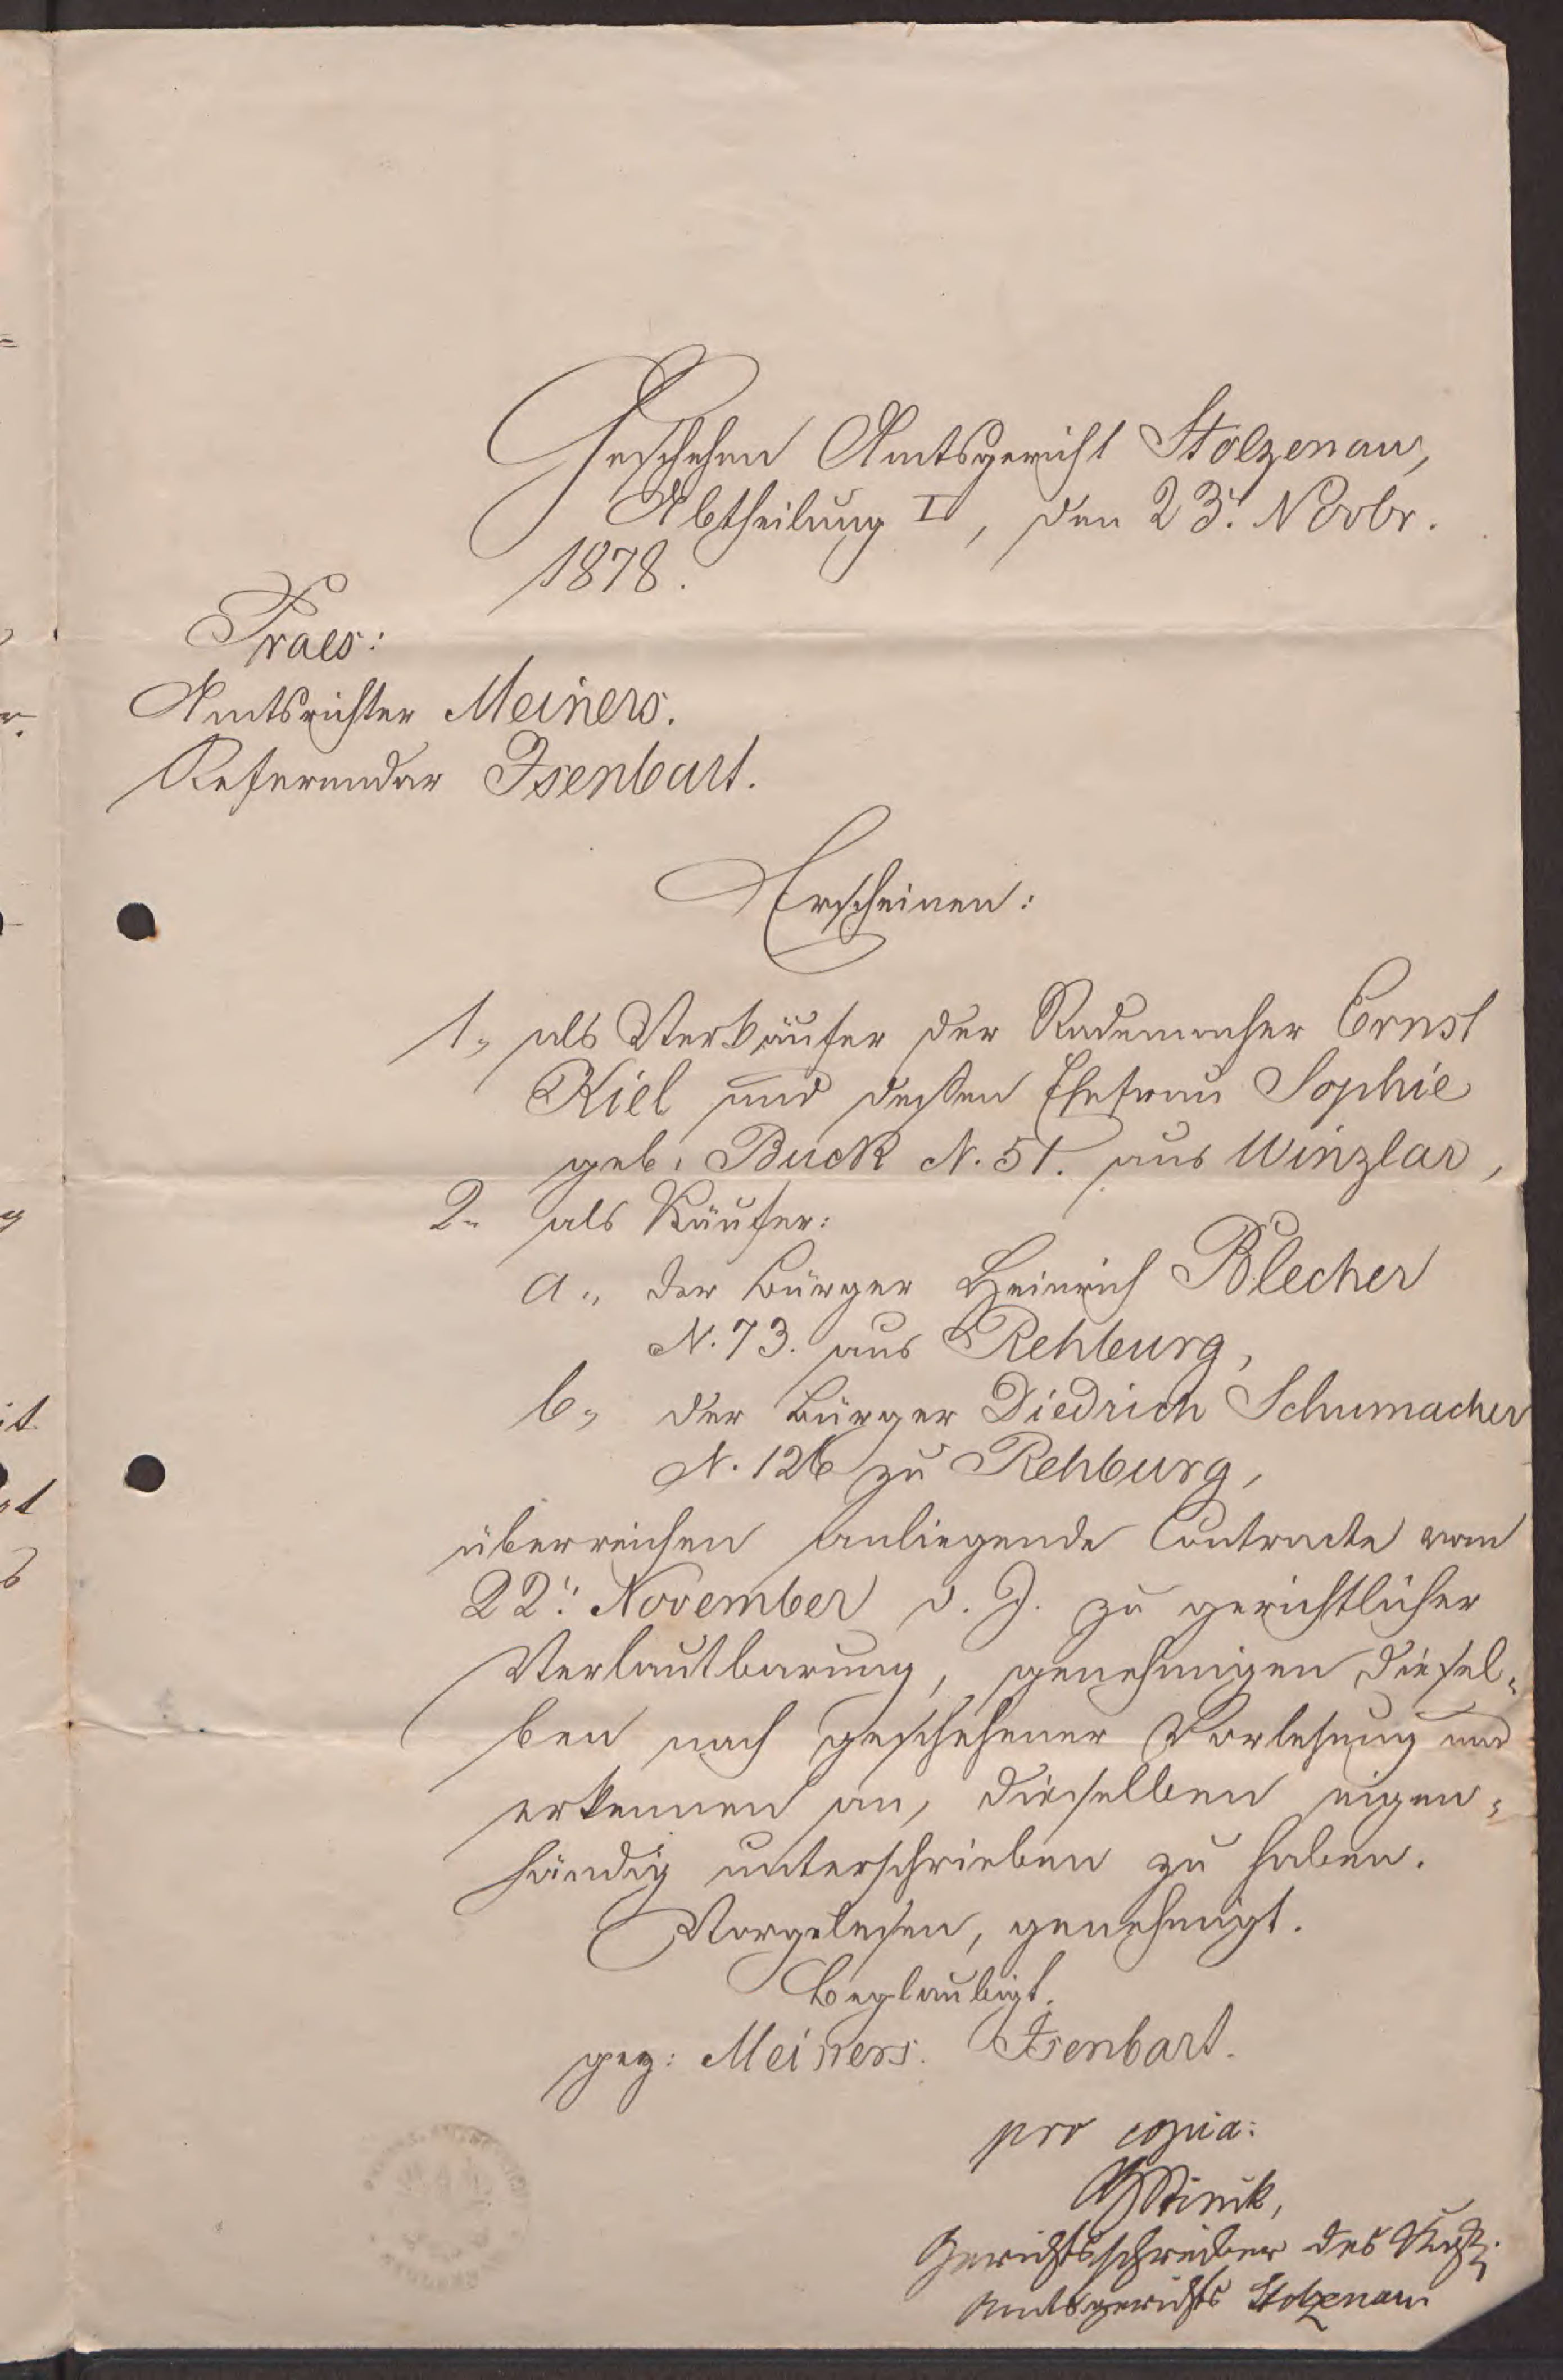 Geschehen Amtsgericht Stolzenau,
Abtheilung I, den 23. Novbr.
1878.
Praes:
Amtsrichter Meiners.
Referendar Isenbart.
Erscheinen:
1., als Verkäufer der Rademacher Ernst
Kiel und dessen Ehefrau Sophie
geb. Buck N. 51. aus Winzlar,
2. als Käufer:
a., der Bürger Heinrich Blecher
N. 73. aus Rehburg,
b., der Bürger Diedrich Schumacher
N. 126 zu Rehburg,
überreichen anliegende Contracte vom
22. November d. J. zu gerichtlicher
Verlautbarung, genehmigen diesel-
ben nach geschehener Vorlesung und
erkennen an, dieselben eigen-
händig unterschrieben zu haben.
Vorgelesen, genehmigt.
Beglaubigt.
gez: Meiners. Isenbart.
pro copia:
Gerichtsschreiber des
Amtsgerichts Stolzenau